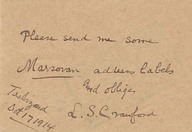 Please send me some
Marsovan address labels
and oblige
L. S. Crawford
Trebizond
Oct 17 1914